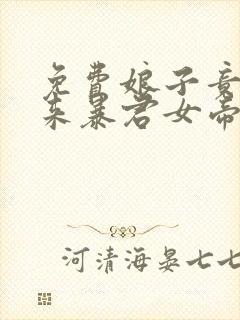 免費娘子竟
來暴君女帝
河清海晏七七